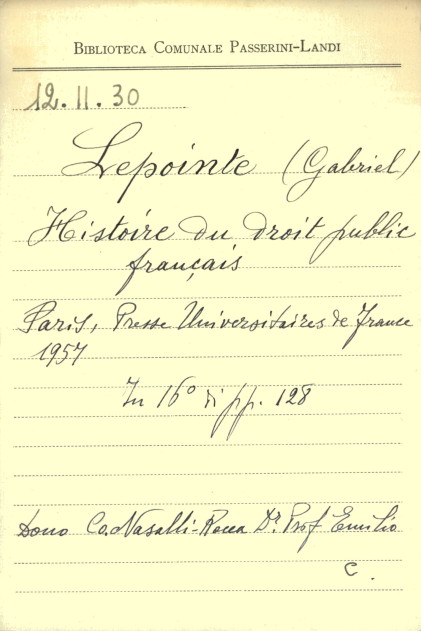 BIBLIOTECA COMUNALE PASSERINI-LANDI
12.11.30
Lepointe (Gabriel)
Histoire du droit public
français
Paris, Presse Universitaires de France
1957
In 16° di pp. 128
Dono Co. Nasalli-Rocca Dr. Prof Emilio
C.